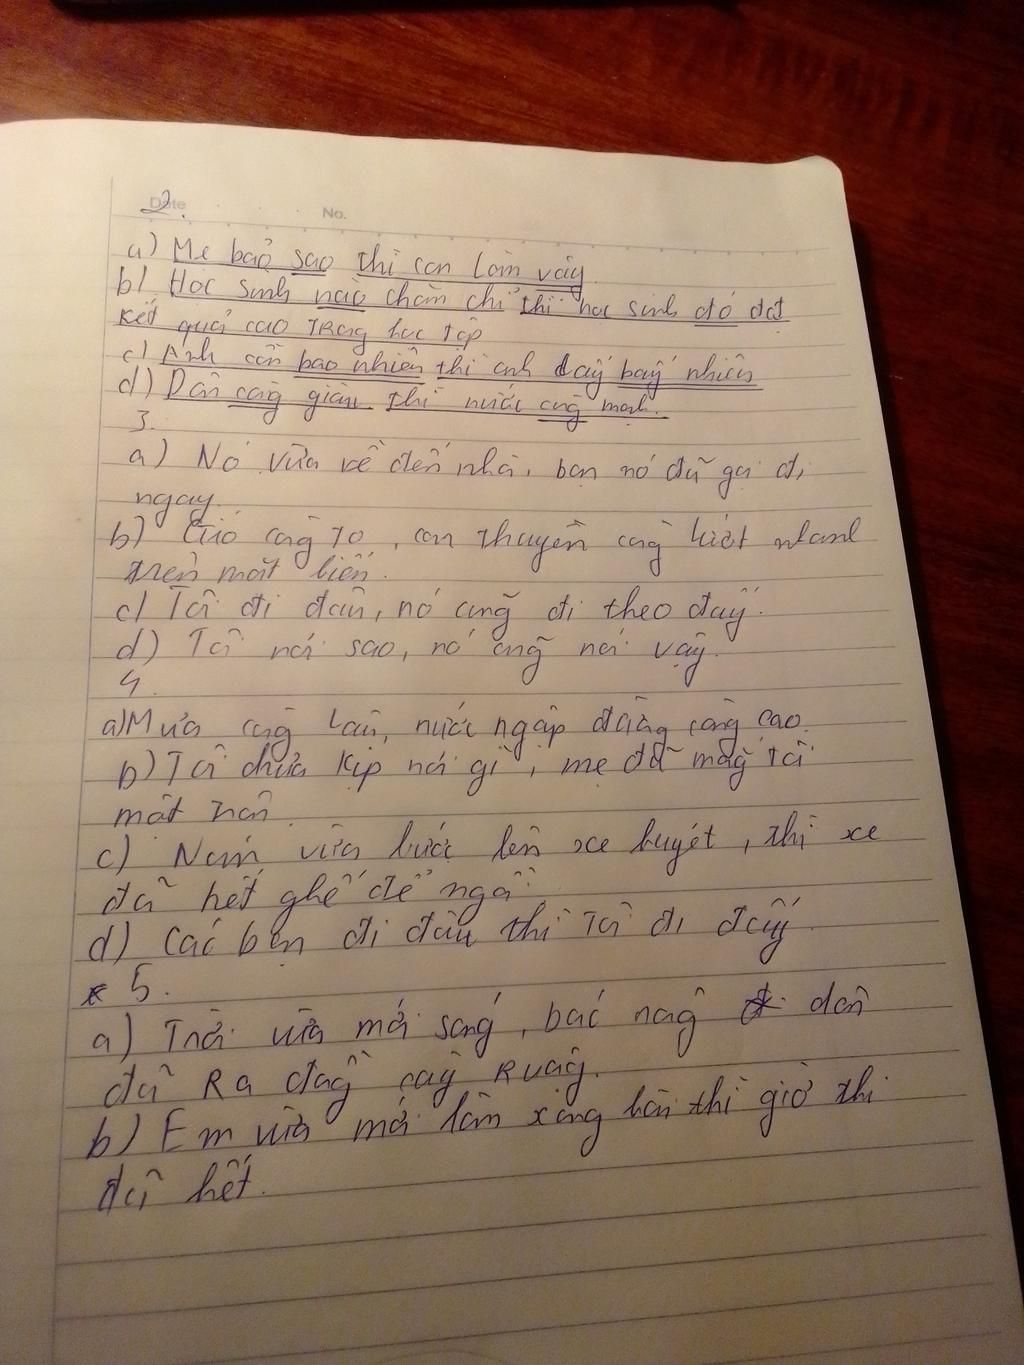 Date 2. No.
a) Mẹ bảo sao thì con làm vậy
b) Học sinh nào chăm chỉ thì học sinh đó đạt
kết quả cao trong học tập
c) Anh cần bao nhiêu thì anh lấy bấy nhiêu
d) Dân càng giàu thì nước càng mạnh.
3.
a) Nó vừa về đến nhà, bạn nó đã gọi đi
ngay
b) Gió càng to, con thuyền càng lướt nhanh
trên mặt biển.
c) Tôi đi đâu, nó cũng đi theo đấy.
d) Tôi nói sao, nó cũng nói vậy.
4.
a) Mưa càng lâu, nước ngập đường càng cao.
b) Tôi chưa kịp nói gì, mẹ đã mắng tôi
một trận.
c) Nam vừa bước lên xe buýt, thì xe
đã hết ghế để ngồi
d) Các bạn đi đâu thì tôi đi đấy.
5.
a) Trời vừa mới sáng, bác nông dân
đã ra đồng cày ruộng.
b) Em vừa mới làm xong bài thì giờ thi
đã hết.